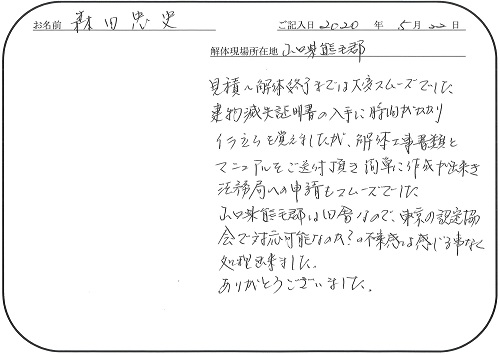 お名前 森田忠史 ご記入日 2020 年 5月22日
解体現場所在地 山口県熊毛郡
見積〜解体終了までは大変スムーズでした
建物滅失証明書の入手に時間がかかり
イラ立ちを覚えましたが、解体工事書類と
マニュアルをご送付頂き簡単に作成が出来き
法務局への申請もスムーズでした
山口県熊毛郡は田舎なので、東京の認定協
会で対応可能なのか？の不安感は感じる事なく
処理出来ました。
ありがとうございました。